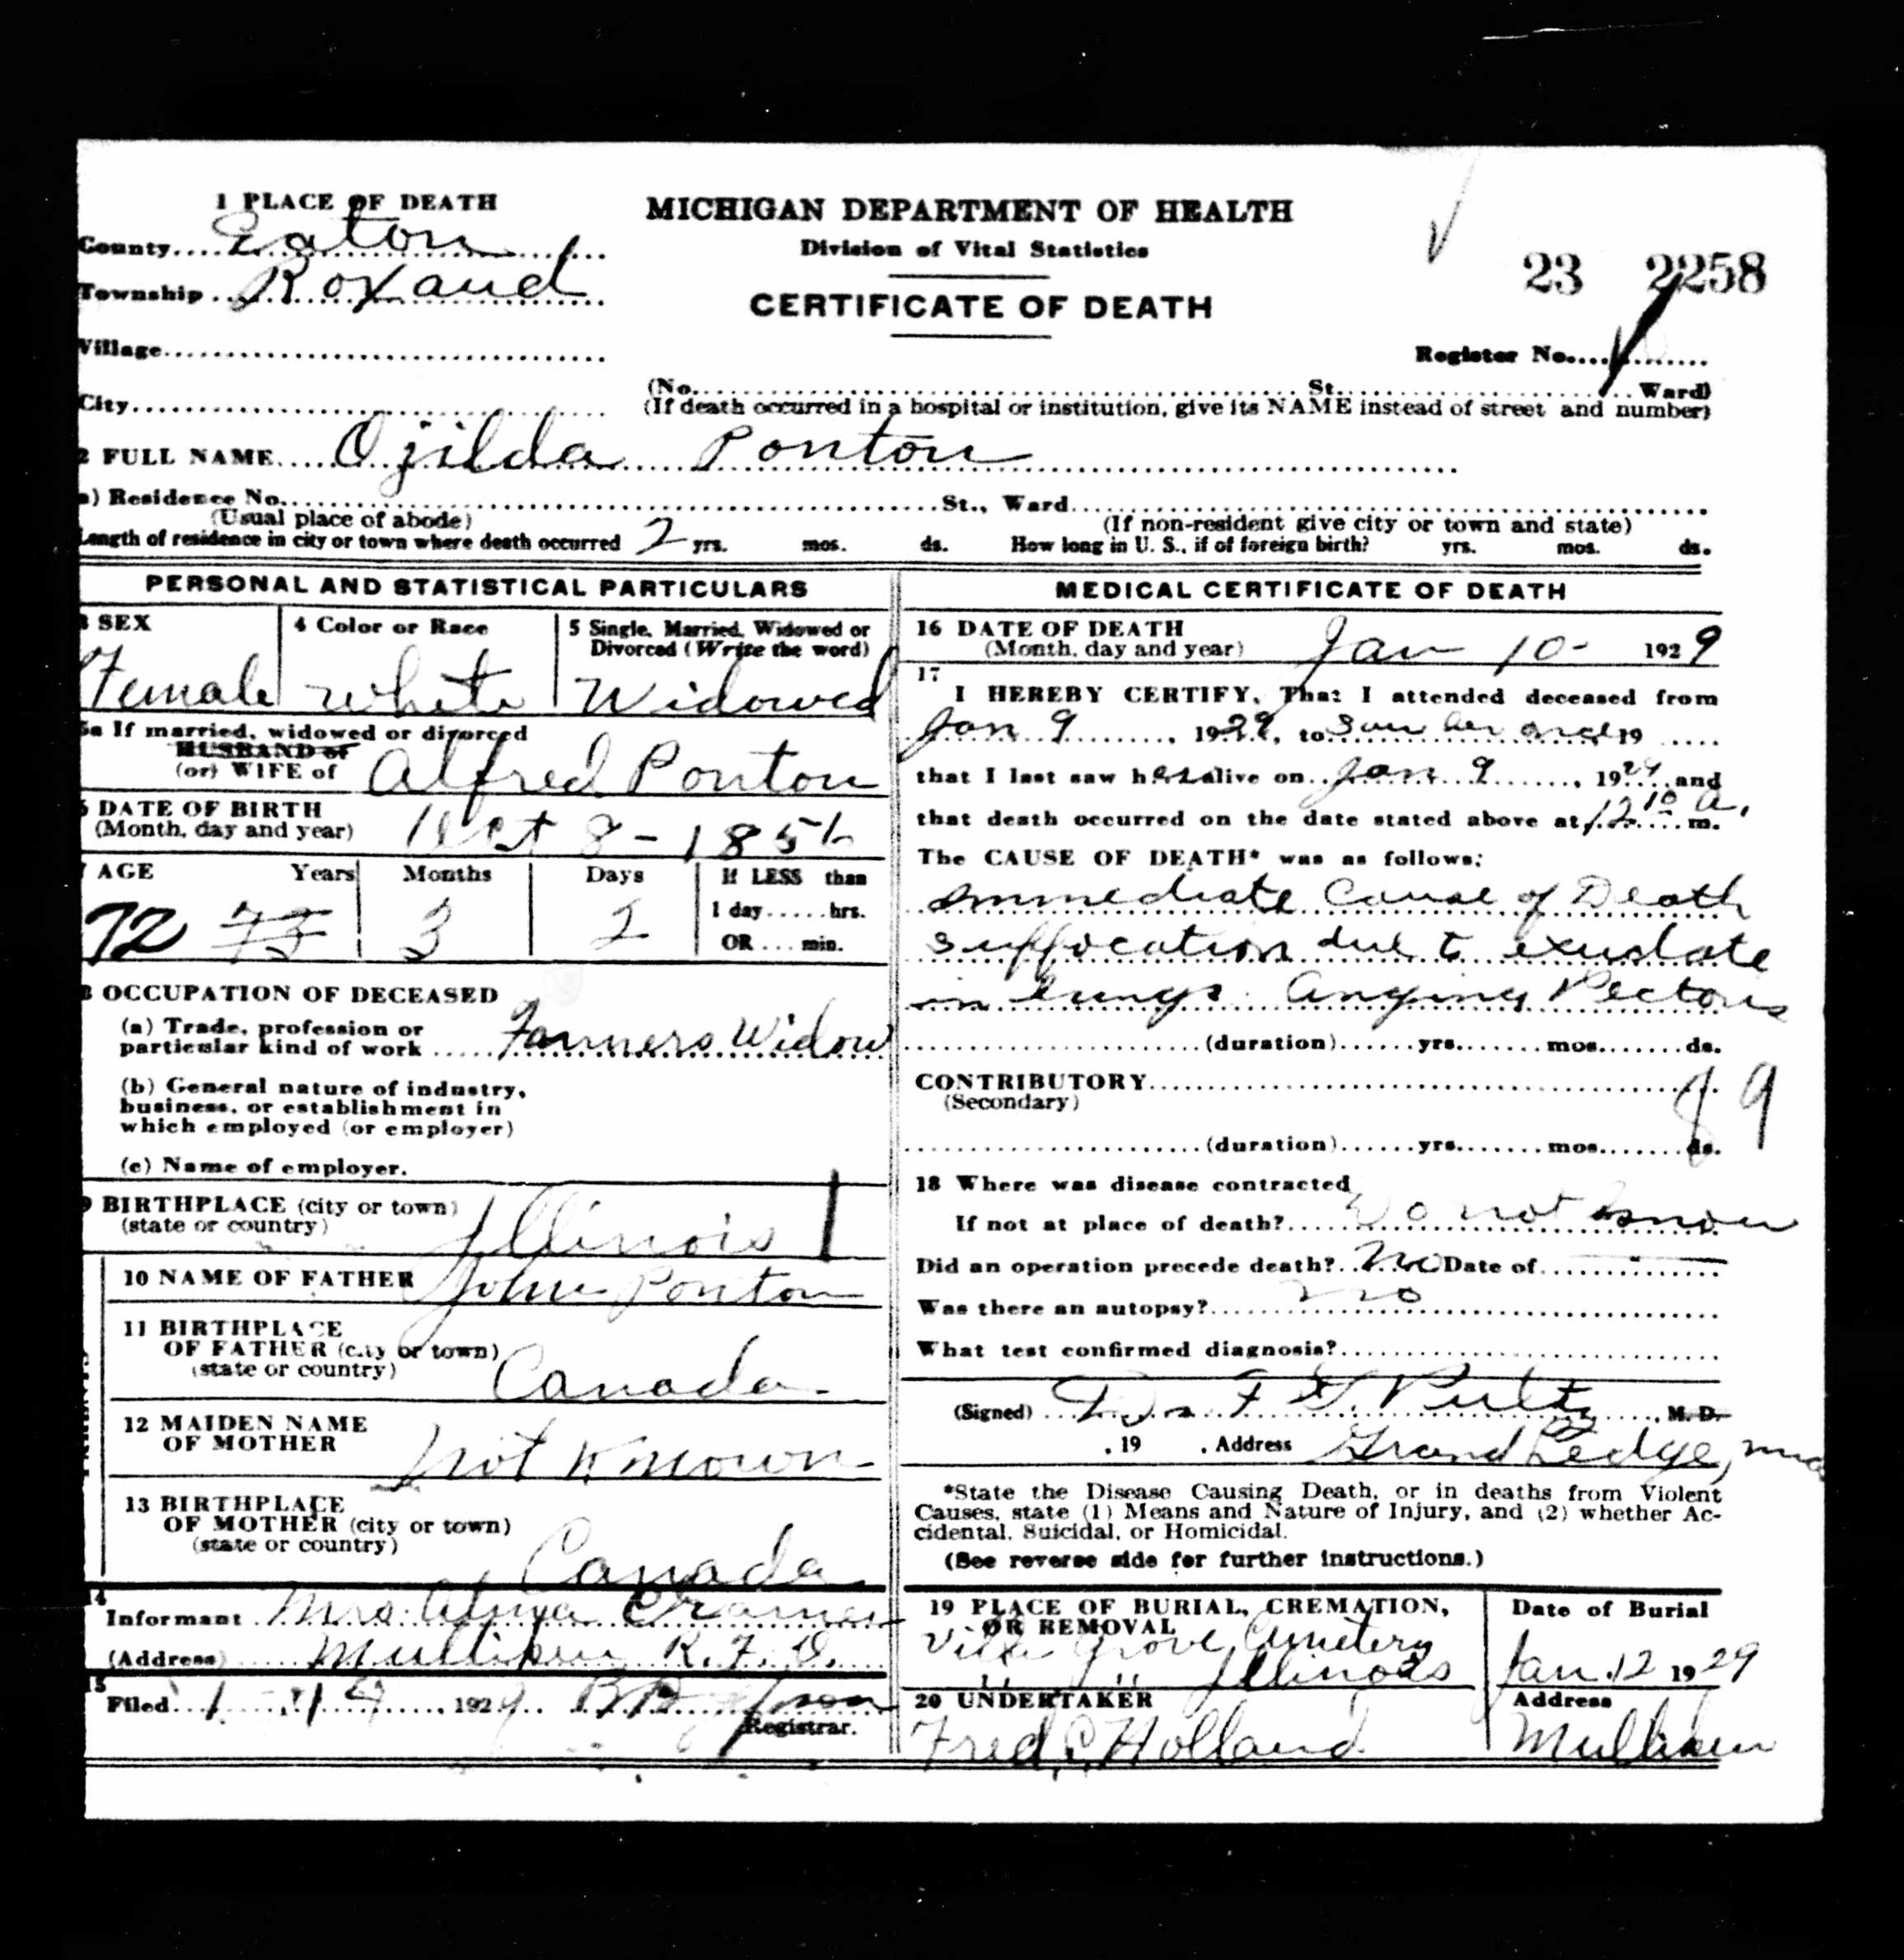 1 PLACE OF DEATH
County Eaton
Township Roxand
Village
City
MICHIGAN DEPARTMENT OF HEALTH
Division of Vital Statistics
CERTIFICATE OF DEATH
23 2258
Register No.
(No. St. Ward)
(If death occurred in a hospital or institution, give its NAME instead of street and number)
2 FULL NAME Ozilda Ponton
a) Residence No. St., Ward
(Usual place of abode) (If non-resident give city or town and state)
Length of residence in city or town where death occurred 2 yrs. mos. ds. How long in U. S., if of foreign birth? yrs. mos. ds.
PERSONAL AND STATISTICAL PARTICULARS
3 SEX
Female
4 Color or Race
White
5 Single, Married, Widowed or
Divorced (Write the word)
Widowed
5a If married, widowed or divorced
HUSBAND of
(or) WIFE of Alfred Ponton
6 DATE OF BIRTH
(Month, day and year) Oct 8 - 1856
7 AGE Years Months Days If LESS than
1 day hrs.
OR min.
72 73 3 2
8 OCCUPATION OF DECEASED
(a) Trade, profession or
particular kind of work Farmers Widow
(b) General nature of industry,
business, or establishment in
which employed (or employer)
(c) Name of employer.
9 BIRTHPLACE (city or town)
(state or country) Illinois
10 NAME OF FATHER John Ponton
11 BIRTHPLACE
OF FATHER (city or town)
(state or country) Canada
12 MAIDEN NAME
OF MOTHER Not Known
13 BIRTHPLACE
OF MOTHER (city or town)
(state or country) Canada
14
Informant Mrs. Cramer
(Address) Mulliken R.F.D.
15
Filed 1 1929
Registrar.
MEDICAL CERTIFICATE OF DEATH
16 DATE OF DEATH
(Month, day and year) Jan 10 - 1929
17
I HEREBY CERTIFY, That I attended deceased from
Jan 9, 1929, to Saw her once 19
that I last saw her alive on Jan 9, 1929 and
that death occurred on the date stated above at 12 10 a. m.
The CAUSE OF DEATH* was as follows:
Immediate Cause of Death
suffocation due to exudate
in lungs. Angina Pectoris
(duration) yrs. mos. ds.
CONTRIBUTORY
(Secondary)
89
(duration) yrs. mos. ds.
18 Where was disease contracted
If not at place of death? Do not know
Did an operation precede death? No Date of
Was there an autopsy? No
What test confirmed diagnosis?
(Signed) M. D.
, 19 , Address Grand Ledge, Mich
*State the Disease Causing Death, or in deaths from Violent
Causes, state (1) Means and Nature of Injury, and (2) whether Ac-
cidental, Suicidal, or Homicidal.
(See reverse side for further instructions.)
19 PLACE OF BURIAL, CREMATION,
OR REMOVAL
Grove Cemetery
" " Illinois
Date of Burial
Jan. 12 1929
20 UNDERTAKER
Fred C. Holland
Address
Mulliken